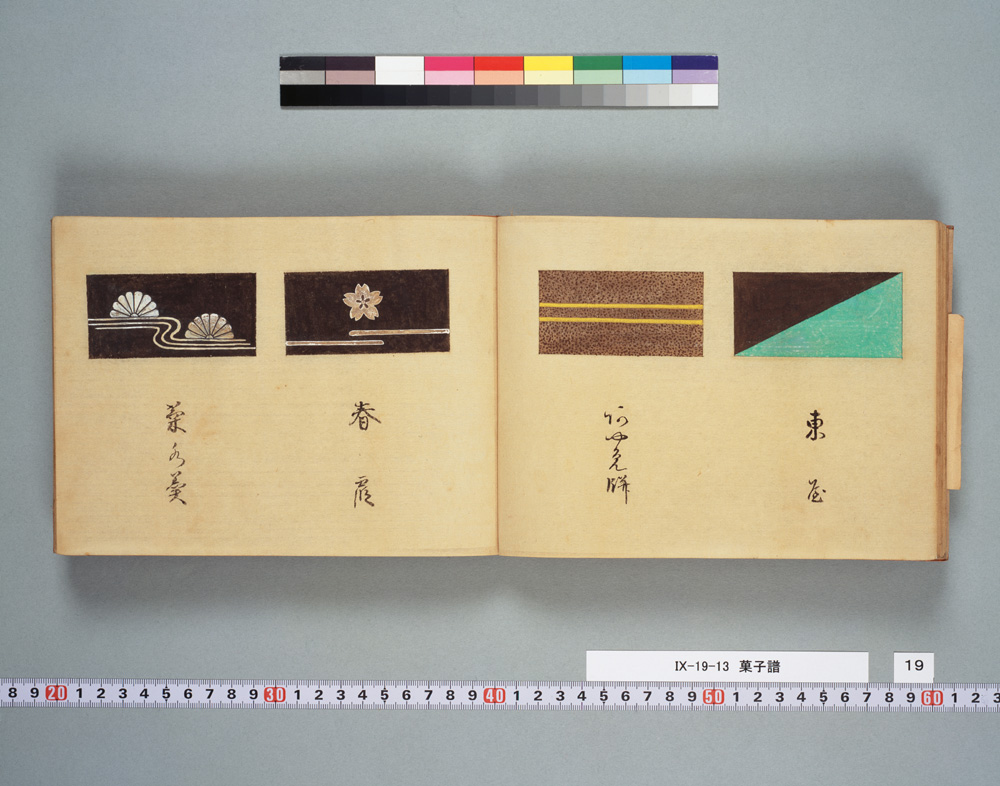 東屋
阿や免餅
春霞
菊水羹
IX-19-13 菓子譜
19
8 9 20 1 2 3 4 5 6 7 8 9 30 1 2 3 4 5 6 7 8 9 40 1 2 3 4 5 6 7 8 9 50 1 2 3 4 5 6 7 8 9 60 1 2 3